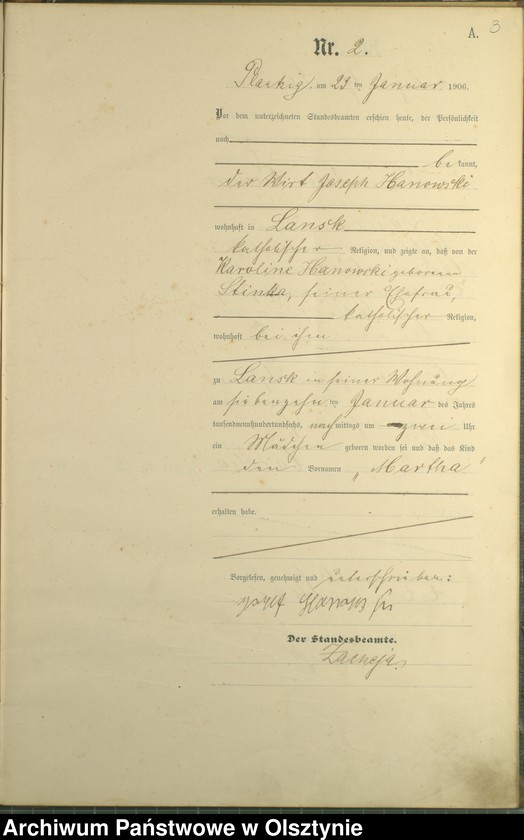 A. 3
Nr. 2.
am 23 ten Januar 1906.
Vor dem unterzeichneten Standesbeamten erschien heute, der Persönlichkeit
nach
be kannt,
der Wirt Joseph Hanowski
wohnhaft in Lansk
katholischer Religion, und zeigte an, daß von der
Karoline Hanowski geborenen
seiner Ehefrau,
katholischer Religion,
wohnhaft bei ihm
zu Lansk in seiner Wohnung
am siebenzehn ten Januar des Jahres
tausendneunhundertundsechs, nachmittags um zwei Uhr
ein Mädchen geboren worden sei und daß das Kind
den Vornamen „Martha"
erhalten habe.
Vorgelesen, genehmigt und unterschrieben:
Der Standesbeamte.
Archiwum Państwowe w Olsztynie